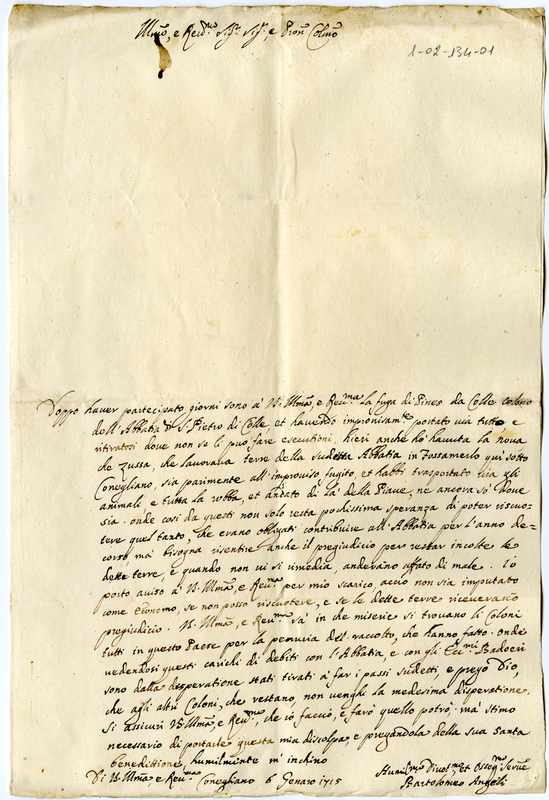 Illmo, e Revmo Sigr Sigr, e Pron Colmo
1-02-134-01
Doppo haver partecipato giorni sono à V.S. Illma, e Revma la fuga di Pines da Colle colono
dell'Abbatia di S. Pietro di Colle et havendo improvisamte portato via tutto e
ritiratosi dove non se li può fare esecutioni, hieri anche hò havuta la nova
che Zussa, che lavorava terre della sudetta Abbatia in Fossamerlo qui sotto
Conegliano, sia parimente all'improviso fugito, et habbi trasportato via gli
animali e tutta la robba, et andato di là della Piave, ne ancora sò dove
sia. onde così da questi non solo resta pochissima speranza di poter riscuo-
tere quel tanto, che erano obligati contribuire all'Abbatia per l'anno de-
corso mà bisogna risentire anche il pregiudicio per restar incolte le
dette terre, e quando non vi si rimedia, anderano affato di male. Io
porto aviso à V.S. Illma, e Revma per mio scarico, acciò non sia imputato
come Economo, se non posso riscuotere, e se le dette terre riceverano
pregiudicio. V.S. Illma, e Revma sà in che miserie si trovano li Coloni
tutti in questo Paese per la penuria del raccolto, che hanno fatto. onde
vedendosi questi carichi di debiti con l'Abbatia, e con gli Eccmi Badoeri
sono dalla desperatione stati tirati à far i passi sudetti, e prego Dio,
che agli altri Coloni, che restano, non venghi la medesima disperatione.
Si assicuri V.S. Illma, e Revma, che io faccio, e farò quello potrò: mà stimo
necessario di portarle questa mia discolpa, e pregandola della sua santa
benedittione, humilmente m'inchino
Di V.S. Illma e Revma Conegliano 6 Genaro 1715
Humilmo Divotmo, et Osseqmo Servre
Bartolomeo Angeli